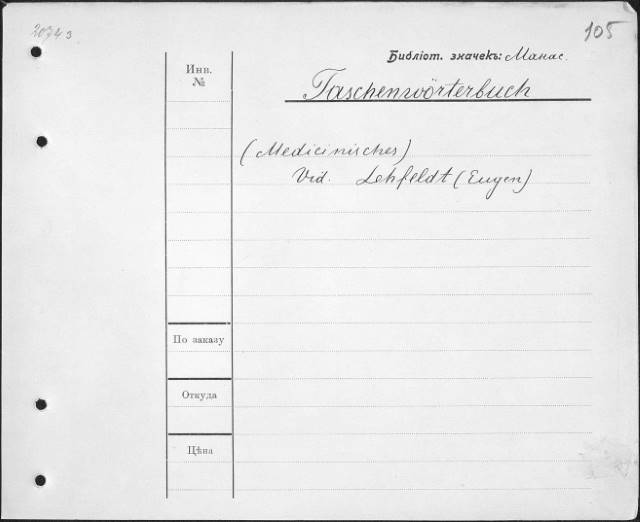 2074з
105
Библіот. значекъ: Манас.
Инв.
№
Taschenwörterbuch
(Medicinisches)
Vid. Lehfeldt (Eugen)
По заказу
Откуда
Цѣна